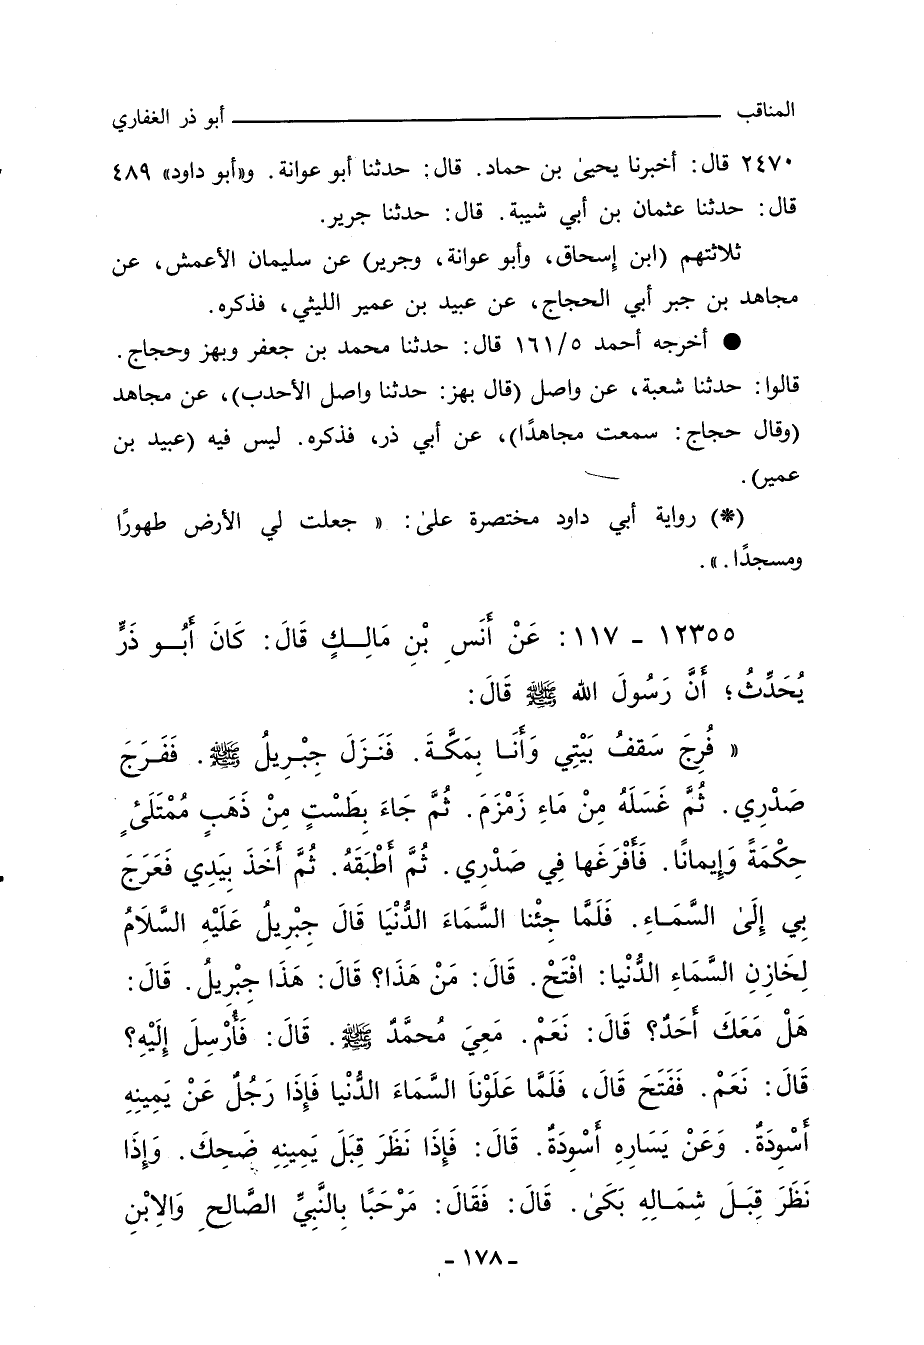 المناقب ـــــــــــــــــــــ أبو ذر الغفاري
٢٤٧٠ قال: أخبرنا يحيىٰ بن حماد. قال: حدثنا أبو عوانة. و«أبو داود» ٤٨٩
قال: حدثنا عثمان بن أبي شيبة. قال: حدثنا جرير.
ثلاثتهم (ابن إسحاق، وأبو عوانة، وجرير) عن سليمان الأعمش، عن
مجاهد بن جبر أبي الحجاج، عن عبيد بن عمير الليثي، فذكره.
● أخرجه أحمد ١٦١/٥ قال: حدثنا محمد بن جعفر وبهز وحجاج.
قالوا: حدثنا شعبة، عن واصل (قال بهز: حدثنا واصل الأحدب)، عن مجاهد
(وقال حجاج: سمعت مجاهدًا)، عن أبي ذر، فذكره. ليس فيه (عبيد بن
عمير).
(*) رواية أبي داود مختصرة علىٰ: « جعلت لي الأرض طهورًا
ومسجدًا.».
١٢٣٥٥ - ١١٧: عَنْ أَنَسِ بْنِ مَالِكٍ قَالَ: كَانَ أَبُو ذَرٍّ
يُحَدِّثُ؛ أَنَّ رَسُولَ الله ﷺ قَالَ:
« فُرِجَ سَقفُ بَيْتِي وَأَنَا بِمَكَّةَ. فَنَزَلَ جِبْرِيلُ ﷺ. فَفَرَجَ
صَدْرِي. ثُمَّ غَسَلَهُ مِنْ مَاءِ زَمْزَمَ. ثُمَّ جَاءَ بِطَسْتٍ مِنْ ذَهَبٍ مُمْتَلَىءٍ
حِكْمَةً وَإِيمانًا. فَأَفْرَغَها فِي صَدْرِي. ثُمَّ أَطْبَقَهُ. ثُمَّ أَخَذَ بِيَدِي فَعَرَجَ
بِي إِلَىٰ السَّمَاءِ. فَلَمَّا جِئْنا السَّمَاءَ الدُّنْيَا قَالَ جِبْرِيلُ عَلَيْهِ السَّلَامُ
لِخَازِنِ السَّمَاءِ الدُّنْيا: افْتَحْ. قَالَ: مَنْ هَذَا؟ قَالَ: هَذَا جِبْرِيلُ. قَالَ:
هَلْ مَعَكَ أَحَدٌ؟ قَالَ: نَعَمْ. مَعِيَ مُحمَّدٌ ﷺ. قَالَ: فَأُرْسِلَ إِلَيْهِ؟
قَالَ: نَعَمْ. فَفَتَحَ قَالَ، فَلَمَّا عَلَوْنَا السَّمَاءَ الدُّنْيا فَإِذَا رَجُلٌ عَنْ يَمِينِهِ
أَسْوِدَةٌ. وَعَنْ يَسَارِهِ أَسْوِدَةٌ. قَالَ: فَإِذَا نَظَرَ قِبَلَ يَمِينِهِ ضَحِكَ. وَإِذَا
نَظَرَ قِبَلَ شِمَالِهِ بَكَىٰ. قَالَ: فَقَالَ: مَرْحَبًا بِالنَّبِيِّ الصَّالِحِ وَالِابْنِ
- ١٧٨ -